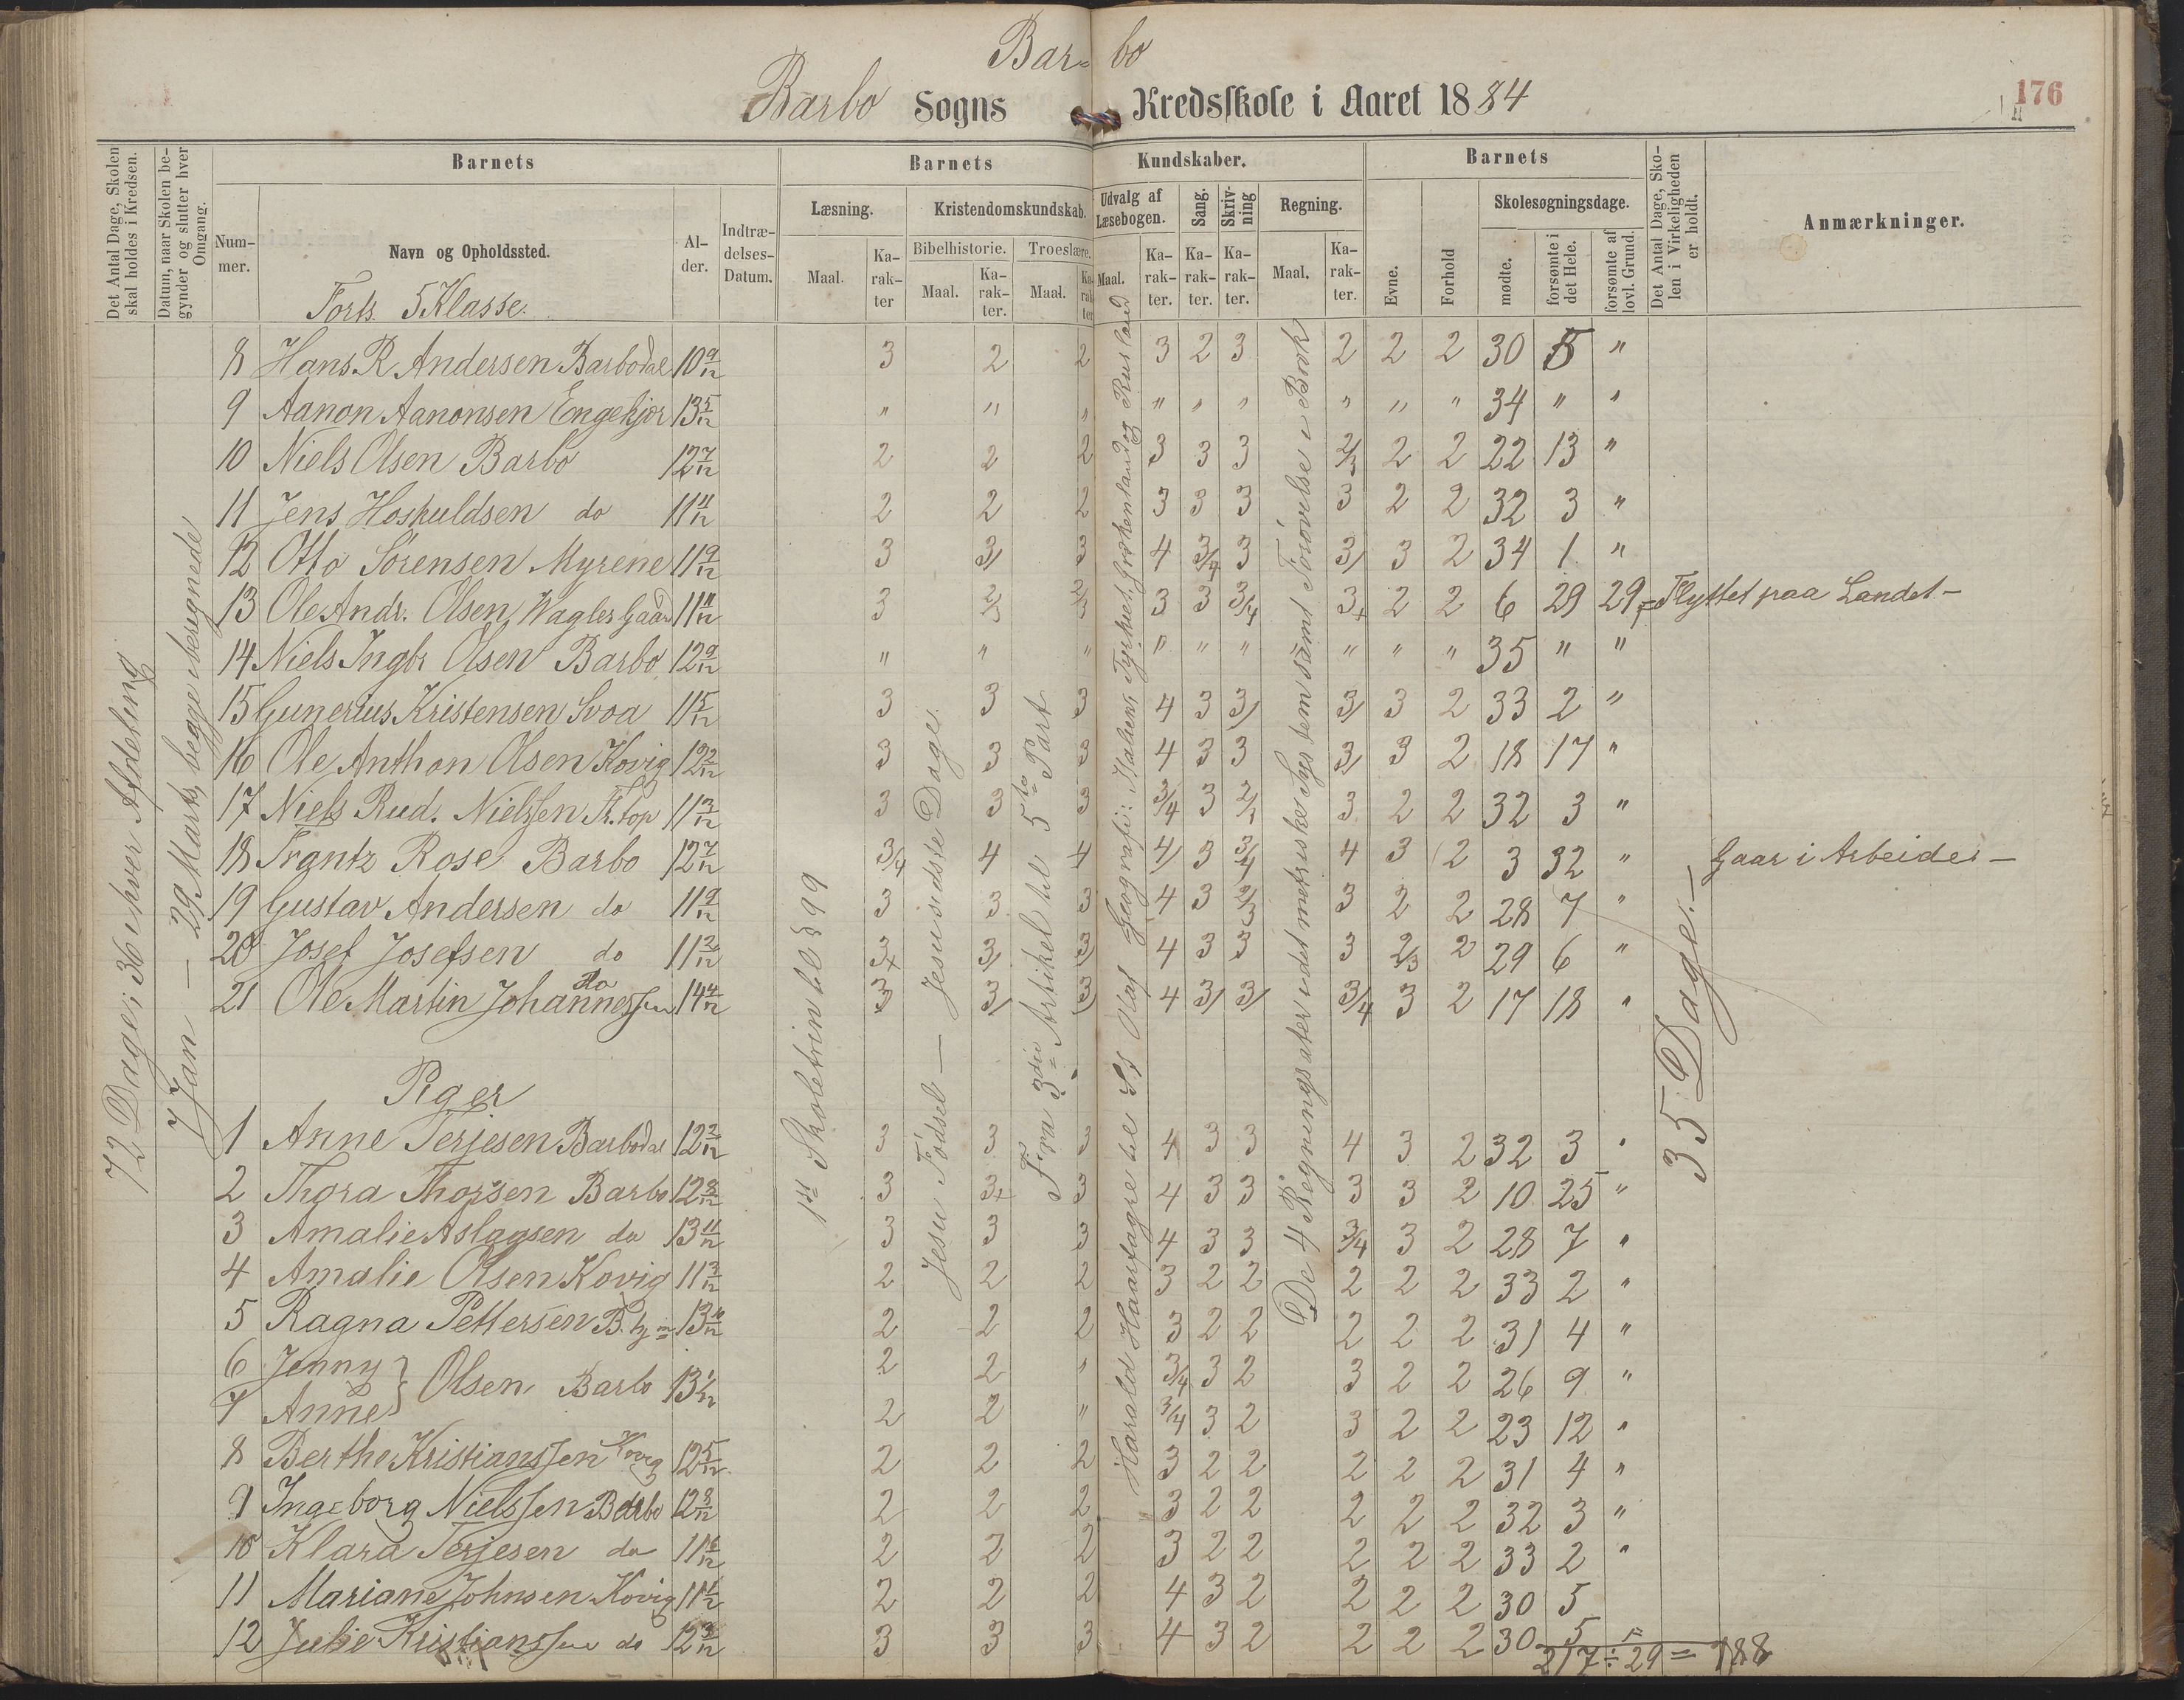 Bar= bo
Barbo Sogns Kredsskole i Aaret 1884
176
Det Antal Dage, Skolen skal holdes i Kredsen.
Datum, naar Skolen begynder og slutter hver Omgang.
Barnets
Barnets Kundskaber.
Barnets
Det Antal Dage, Skolen i Virkeligheden er holdt.
Anmærkninger.
Nummer.
Navn og Opholdssted.
Alder.
Indtrædelses-Datum.
Læsning.
Kristendomskundskab.
Udvalg af Læsebogen.
Sang.
Skrivning
Regning.
Evne.
Forhold
Skolesøgningsdage.
Bibelhistorie.
Troeslære.
Maal.
Karakter
Maal.
Karakter.
Maal.
Karakter
Maal.
Karakter.
Karakter.
Karakter.
Maal.
Karakter.
mødte.
forsømte i det Hele.
forsømte af lovl. Grund.
Forts. 5 Klasse.
72 Dage; 36 i hver Afdeling
7 Jan — 29 Marts, begge iberegnede
1ste Skoletrin til § 99
Jesu Fødsel — Jesu sidste Dage.
Fra 3die Artikel til 5te Part
Harald Haarfagre til St Olaf Geografi: Italien, Tyrkiet, Grækenland og Rusland
De 4 Regningsarter i det metriske System samt Forøvelse i Brøk
35 Dage.—
8 Hans R Andersen Barbodal 10 9/12 3 2 2 3 2 3 2 2 2 30 5 "
9 Aanon Aanonsen Engekjær 13 5/12 " " " " " " " " " 34 " "
10 Niels Olsen Barbo 12 7/12 2 2 2 3 3 3 2/3 2 2 22 13 "
11 Jens Hoskuldsen do 11 11/12 2 2 2 3 3 3 3 2 2 32 3 "
12 Otto Sørensen Myrene 11 9/12 3 3/ 3 4 3/4 3 3/ 3 2 34 1 "
13 Ole Andr. Olsen, Wagles Gaard 11 11/12 3 2/3 2/3 3 3 3/4 3+ 2 2 6 29 29,= Flyttet paa Landet —
14 Niels Ingbr Olsen Barbo 12 9/12 " " " " " " " " " 35 " "
15 Gunerius Kristensen Svoa 11 5/12 3 3 3 4 3 3/ 3/ 3 2 33 2 "
16 Ole Anthon Olsen Kovig 12 2/12 3 3 3 4 3 3 3/ 3 2 18 17 "
17 Niels Rud. Nielssen Fr.top 11 3/12 3 3 3 3/4 3 2/3 3 2 2 32 3 "
18 Frantz Rose Barbo 12 7/12 3/4 4 4 4/ 3 3/4 4 3 2 3 32 " Gaar i Arbeide —
19 Gustav Andersen do 11 9/12 3 3 3 4 3 2/3 3 2 2 28 7 "
20 Josef Josefsen do 11 2/12 3+ 3/ 3/ 4 3 3 3 2/3 2 29 6 "
21 Ole Martin Johannessen do 14 4/12 3 3/ 3/ 4 3/ 3/ 3/4 3 2 17 18 "
Piger
1 Anne Terjesen Barbodal 12 2/12 3 3 3 4 3 3 4 3 2 32 3 "
2 Thora Thorsen Barbo 12 8/12 3 3+ 3 4 3 3 3 3 2 10 25 "
3 Amalie Aslagsen do 13 11/12 3 3 3 4 3 3 3/4 3 2 28 7 "
4 Amalie Olsen Kovig 11 3/12 2 2 2 3 2 2 2 2 2 33 2 "
5 Ragna Pettersen 13 10/12 2 2 2 3 2 2 2 2 2 31 4 "
6 Jenny } Olsen Barbo 13 1/12 2 2 " 3/4 3 2 3 2 2 26 9 "
7 Anne } 2 2 " 3/4 3 2 3 2 2 23 12 "
8 Berthe Kristianssen Kovig 12 5/12 2 2 2 3 2 2 2 2 2 31 4 "
9 Ingeborg Nielssen Barbo 12 8/12 2 2 2 3 2 2 2 2 2 32 3 "
10 Klara Terjesen do 11 6/12 2 2 2 3 2 2 2 2 2 33 2 "
11 Mariane Johnsen Kovig 11 1/12 2 2 2 4 3 2 2 2 2 30 5
12 Julie Kristianssen do 12 3/12 3 3 3 4 3 2 2 2 2 30 5 "
217 ÷ 29 = 188